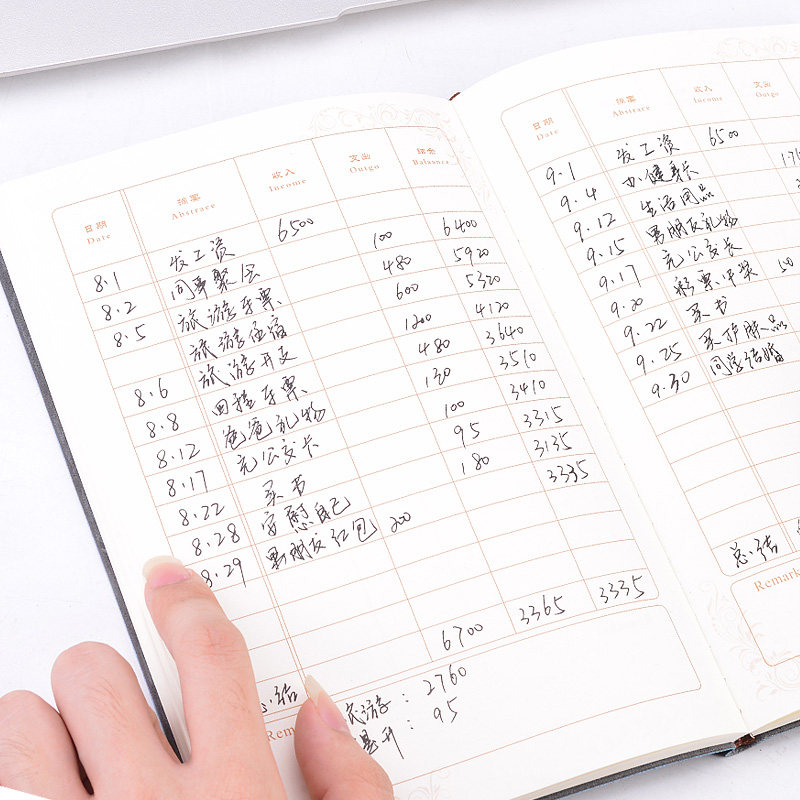 日期 摘要 收入 支出 结余
Date Abstrace Income Outgo Balance
8.1 发工资 6500
8.2 同事聚会 100 6400
8.5 旅游车票 480 5920
旅游住宿 600 5320
8.6 旅游开支 1200 4120
8.8 回程车票 480 3640
8.12 爸爸礼物 130 3510
8.17 充公交卡 100 3410
8.22 买书 95 3315
8.28 安慰自己 180 3135
8.29 男朋友红包 200 3335
总结 6700 3365 3335
旅游：2760
95
日期 摘要 收入 支出
Date Abstrace Income Outgo
9.1 发工资 6500
9.4 办健身卡
9.12 生活用品
9.15 男朋友礼物
9.17 充公交卡
9.20 彩票中奖 50
9.22 买书
9.25 买护肤品
9.30 同学结婚
总结
Remark